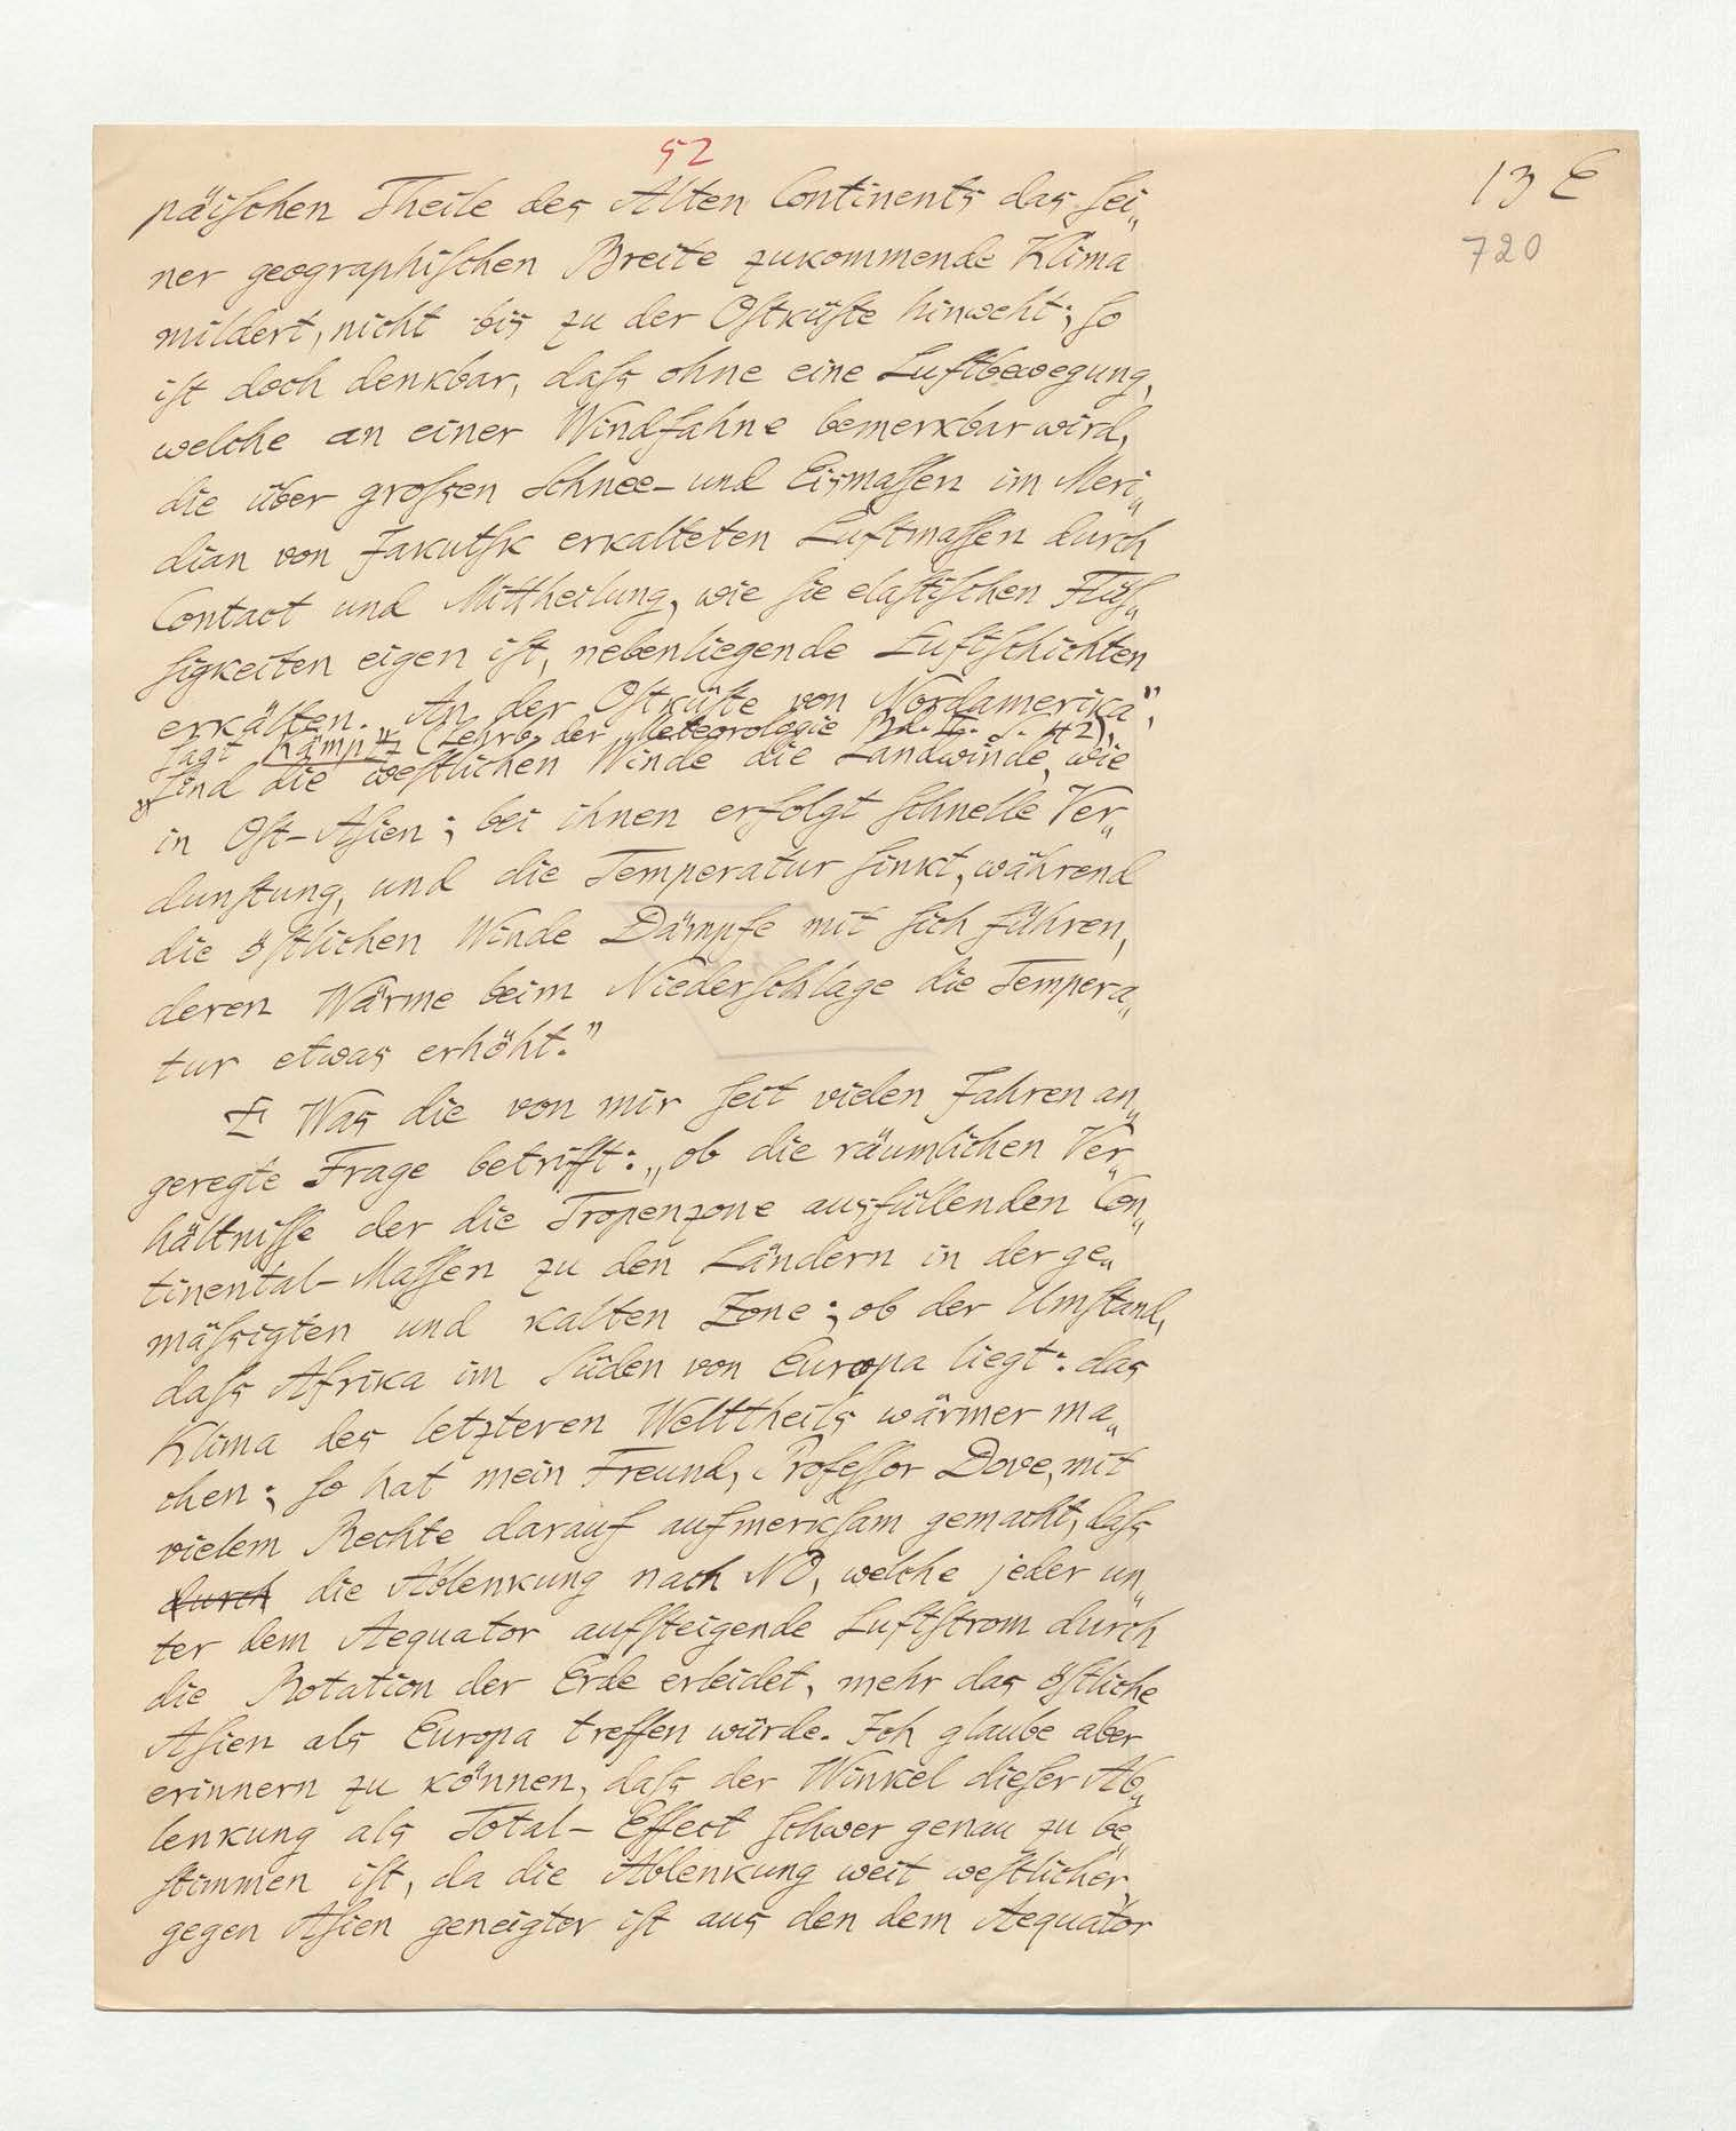 52
13 E
720
päiſchen Theile des Alten Continents das ſei„
ner geographiſchen Breite zukommende Klima
mildert, nicht bis zu der Oſtküſte hinweht; ſo
iſt doch denkbar, daſs ohne eine Luftbewegung,
welche an einer Windfahne bemerkbar wird,
die über groſsen Schnee- und Eismaſſen im Meri„
dian von Jakutſk erkalteten Luftmaſſen durch
Contact und Mittheilung, wie ſie elaſtiſchen Flüſ„
ſigkeiten eigen iſt, nebenliegende Luftſchichten
erkälten. „An der Oſtküſte von Nordamerika",
ſagt Kämptz (Lehrb. der Meteorologie Bd. II. S. 42),
„ſind die weſtlichen Winde die Landwinde, wie
in Oſt-Aſien; bei ihnen erfolgt ſchnelle Ver„
dunſtung, und die Temperatur ſinkt, während
die öſtlichen Winde Dämpfe mit ſich führen,
deren Wärme beim Niederſchlage die Tempera„
tur etwas erhöht."
Was die von mir ſeit vielen Jahren an„
geregte Frage betrifft: „ob die räumlichen Ver„
hältniſſe der die Tropenzone ausfüllenden Con„
tinental-Maſſen zu den Ländern in der ge„
mäſsigten und kalten Zone; ob der Umſtand,
daſs Afrika im Süden von Europa liegt: das
Klima des letzteren Welttheils wärmer ma„
chen; ſo hat mein Freund, Profeſſor Dove, mit
vielem Rechte darauf aufmerkſam gemacht, daſs
durch die Ablenkung nach NO, welche jeder un„
ter dem Aequator aufſteigende Luftſtrom durch
die Rotation der Erde erleidet, mehr das öſtliche
Aſien als Europa treffen würde. Ich glaube aber
erinnern zu können, daſs der Winkel dieſer Ab„
lenkung als Total-Effect ſchwer genau zu be„
ſtimmen iſt, da die Ablenkung weit weſtlicher,
gegen Aſien geneigter iſt aus den dem Aequator